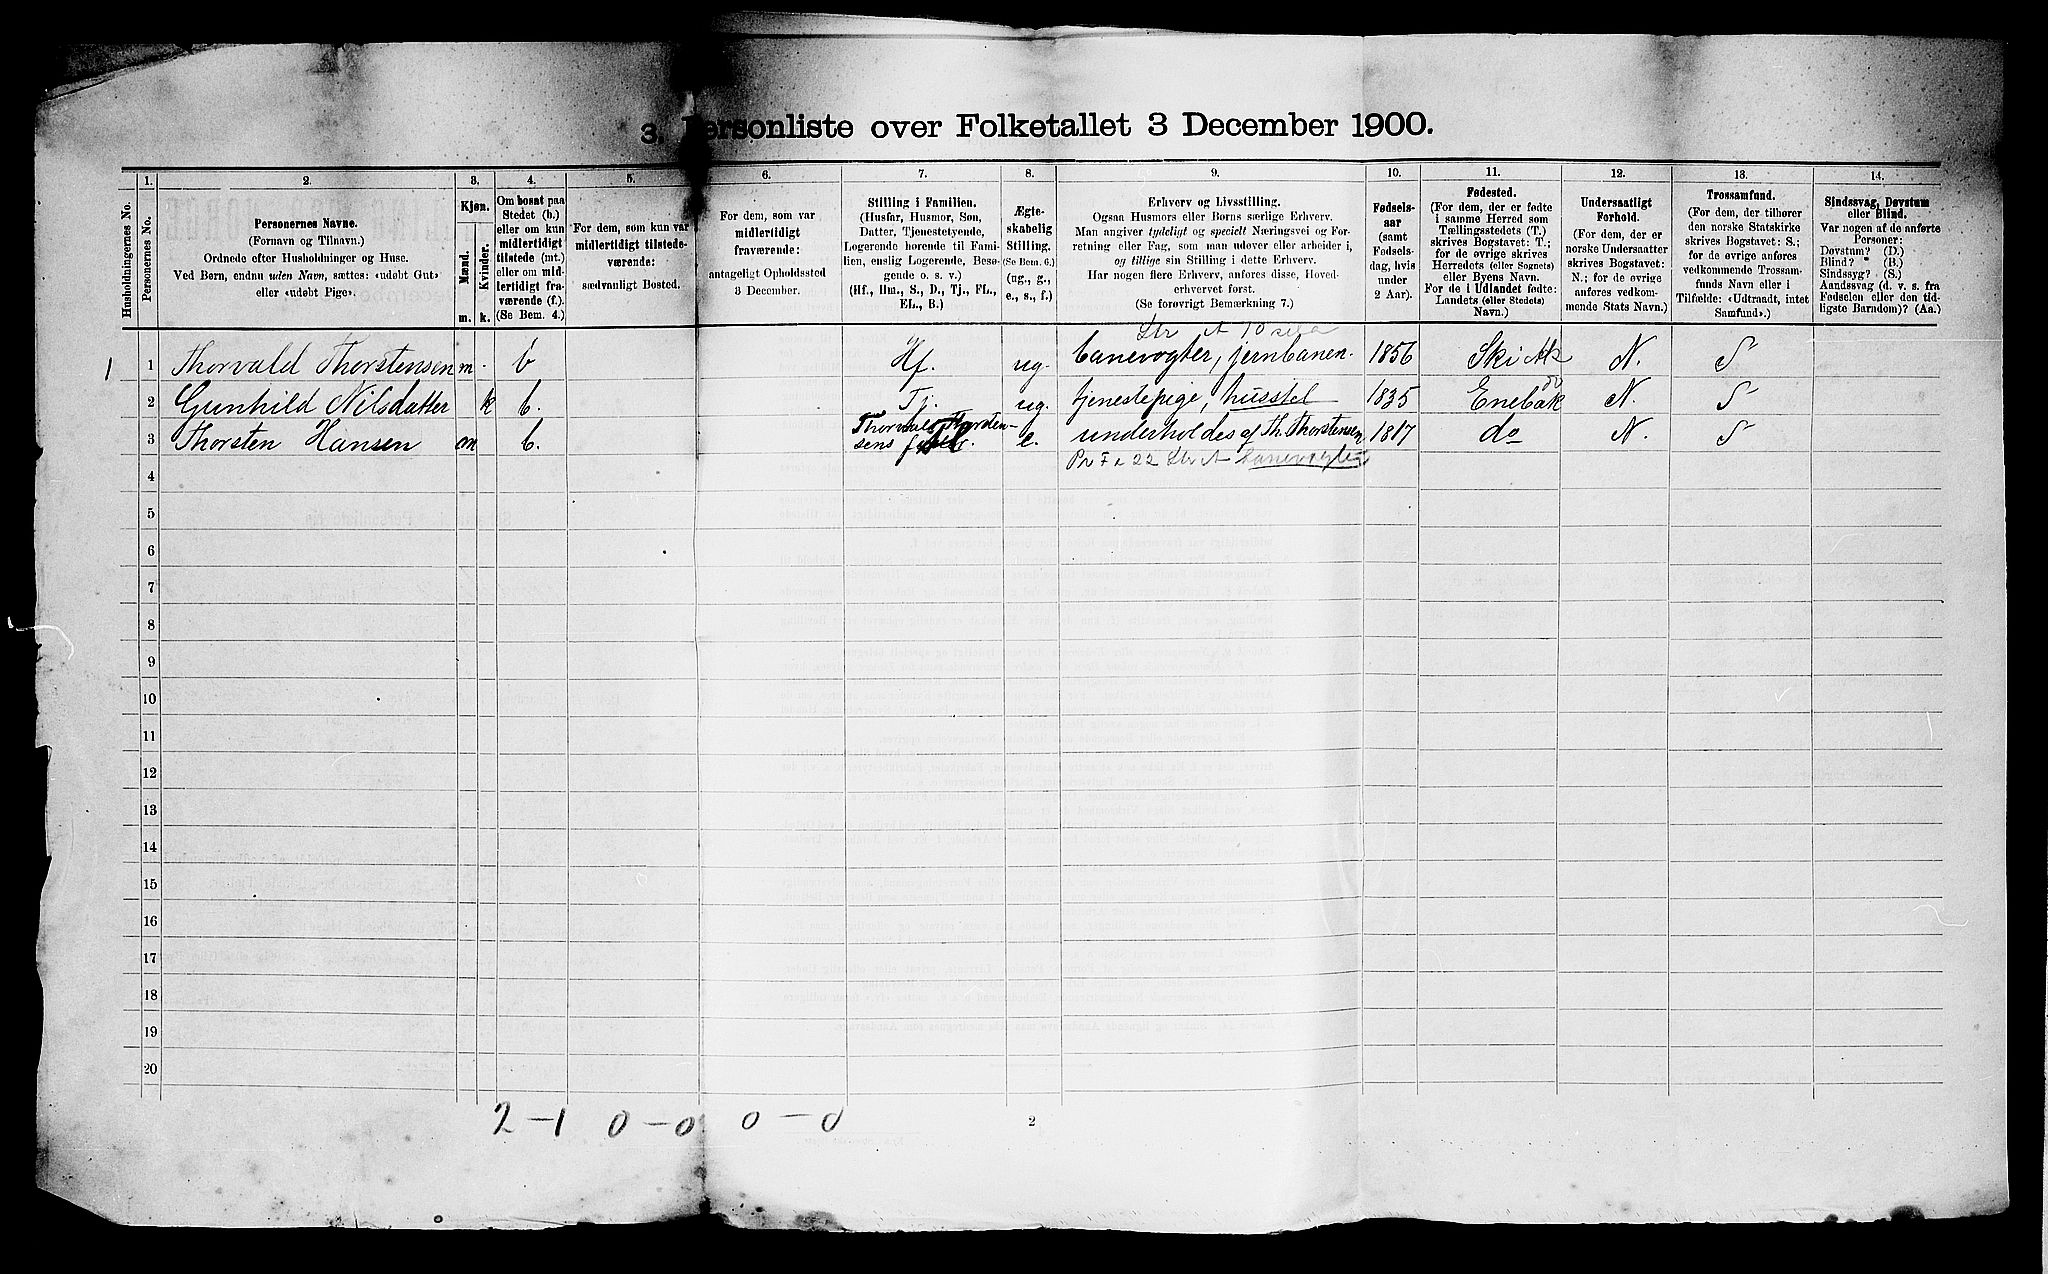 3. Personliste over Folketallet 3 December 1900.
Husholdningernes No.
1.
Personernes No.
2.
Personernes Navne.
(Fornavn og Tilnavn.)
Ordnede efter Husholdninger og Huse.
Ved Børn, endnu uden Navn, sættes: «udøbt Gut»
eller «udøbt Pige».
3.
Kjøn.
Mænd.
Kvinder.
m. k.
4.
Om bosat paa
Stedet (b.)
eller om kun
midlertidigt
tilstede (mt.)
eller om mid-
lertidigt fra-
værende (f.).
(Se Bem. 4.)
5.
For dem, som kun var
midlertidigt tilstede-
værende:
sædvanligt Bosted.
6.
For dem, som var
midlertidigt
fraværende:
antageligt Opholdssted
3 December.
7.
Stilling i Familien.
(Husfar, Husmor, Søn,
Datter, Tjenestetyende,
Logerende hørende til Fami-
lien, enslig Logerende, Besø-
gende o. s. v.)
(Hf., Hm., S., D., Tj., FL.,
EL., B.)
8.
Ægte-
skabelig
Stilling.
(Se Bem. 6.)
(ug., g.,
e., s., f.)
9.
Erhverv og Livsstilling.
Ogsaa Husmors eller Børns særlige Erhverv.
Man angiver tydeligt og specielt Næringsvei og For-
retning eller Fag, som man udøver eller arbeider i,
og tillige sin Stilling i dette Erhverv.
Har nogen flere Erhverv, anføres disse, Hoved-
erhvervet først.
(Se forøvrigt Bemærkning 7.)
10.
Fødsels-
aar
(samt
Fødsels-
dag, hvis
under
2 Aar).
11.
Fødested.
(For dem, der er fødte
i samme Herred som
Tællingsstedets (T.)
skrives Bogstavet: T.;
for de øvrige skrives
Herredets (eller Sognets)
eller Byens Navn.
For de i Udlandet fødte:
Landets (eller Stedets)
Navn.)
12.
Undersaatligt
Forhold.
(For dem, der er
norske Undersaatter
skrives Bogstavet:
N.; for de øvrige
anføres vedkom-
mende Stats Navn.)
13.
Trossamfund.
(For dem, der tilhører
den norske Statskirke
skrives Bogstavet: S.;
for de øvrige anføres
vedkommende Trossam-
funds Navn eller i
Tilfælde: «Udtraadt, intet
Samfund».)
14.
Sindssvag, Døvstum
eller Blind.
Var nogen af de anførte
Personer:
Døvstum? (D.)
Blind? (B.)
Sindssyg? (S.)
Aandssvag (d. v. s. fra
Fødselen eller den tid-
ligste Barndom)? (Aa.)
1 1 Thorvald Thorstensen m. b Hf. ug. banevogter, jernbanen. 1856 Ski Ak N. S
2 Gunhild Nilsdatter k b. Tj. ug. tjenestepige, husstel 1835 Enebak do N. S
3 Thorsten Hansen m b. Thorvald Thorsten-
sens fader. e. underholdes af Th. Thorstensen 1817 do N. S
4
5
6
7
8
9
10
11
12
13
14
15
16
17
18
19
20
2 – 1 0 – 0 0 – 0
2